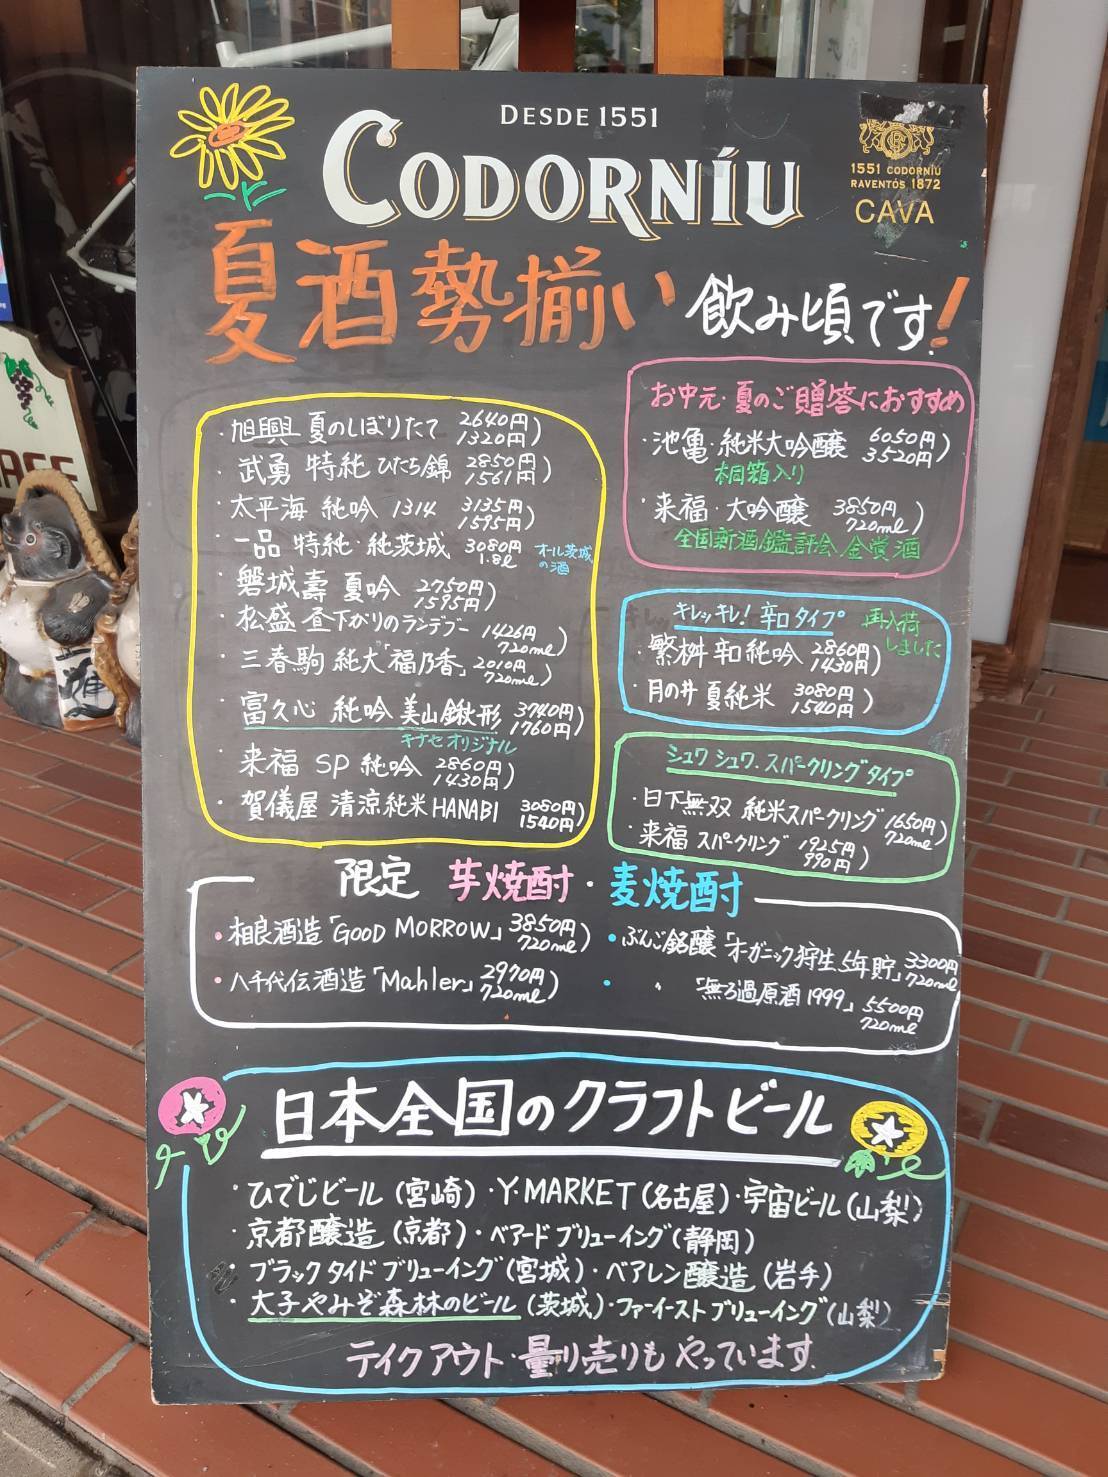 DESDE 1551
CODORNÍU
1551 CODORNÍU
RAVENTÓS 1872
CAVA
夏酒勢揃い 飲み頃です!
・旭興 夏のしぼりたて 2640円 1320円)
・武勇 特純 ひたち錦 2850円 1561円)
・太平海 純吟 1314 3135円 1595円)
・一品 特純・純茨城 3080円 1.8ℓ オール茨城の酒
・磐城壽 夏吟 2750円 1595円)
・松盛 昼下がりのランデブー 1426円 720mℓ)
・三春駒 純大「福乃香」2010円 720mℓ)
・富久心 純吟 美山鍬形 3740円 1760円)
キナセオリジナル
・来福 SP 純吟 2860円 1430円)
・賀儀屋 清涼純米 HANABI 3080円 1540円)
お中元・夏のご贈答におすすめ
・池亀・純米大吟醸 6050円 3520円)
桐箱入り
・来福・大吟醸 3850円 720mℓ)
全国新酒鑑評会 金賞酒
キレッキレ! 辛口タイプ 再入荷しました
・繁桝 辛口純吟 2860円 1430円)
・月の井 夏純米 3080円 1540円)
シュワシュワ. スパークリングタイプ
・日下無双 純米スパークリング 1650円 720mℓ)
・来福 スパークリング 1925円 990円)
限定 芋焼酎・麦焼酎
・相良酒造「GOOD MORROW」3850円 720mℓ)
・八千代伝酒造「Mahler」2970円 720mℓ)
・ぶんご銘醸「オーガニック狩生 5年貯」3300円 720mℓ
・ 〃 「無ろ過原酒1999」5500円 720mℓ
日本全国のクラフトビール
・ひでじビール (宮崎)・Y.MARKET (名古屋)・宇宙ビール (山梨)
・京都醸造 (京都)・ベアードブリューイング (静岡)
・ブラックタイドブリューイング (宮城)・ベアレン醸造 (岩手)
・大子やみぞ森林のビール (茨城)・ファーイーストブリューイング (山梨)
テイクアウト・量り売りもやっています.